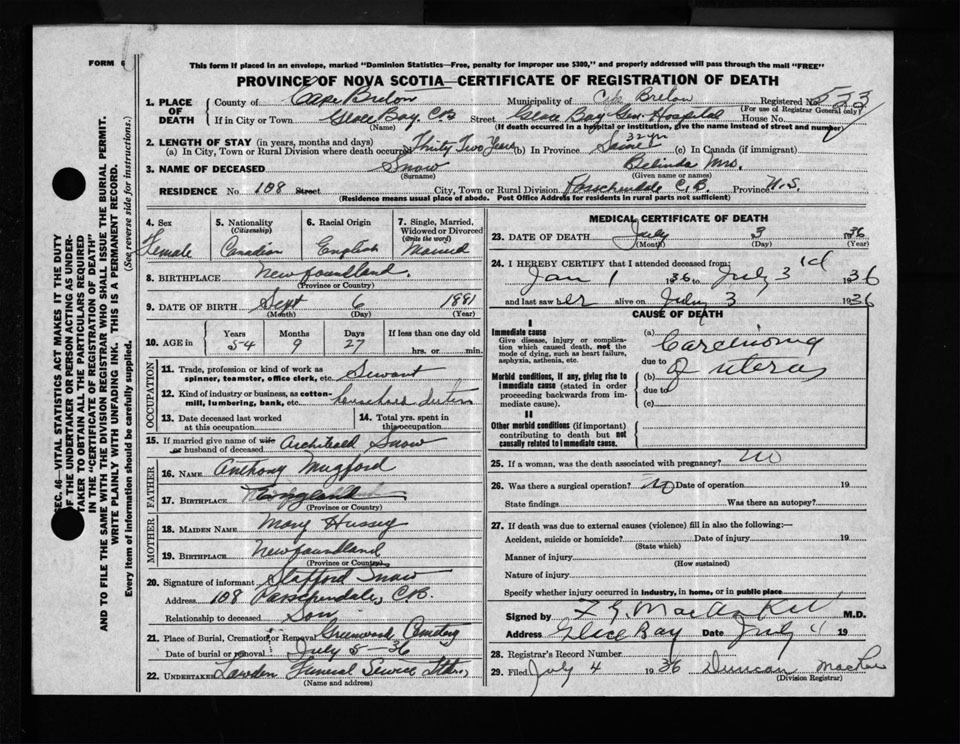 FORM 6
This form if placed in an envelope, marked "Dominion Statistics—Free, penalty for improper use $300," and properly addressed will pass through the mail "FREE"
PROVINCE OF NOVA SCOTIA—CERTIFICATE OF REGISTRATION OF DEATH
1. PLACE OF DEATH
County of Cape Breton Municipality of Cape Breton Registered No. 523
(For use of Registrar General only)
If in City or Town Glace Bay, CB Street Glace Bay Gen. Hospital House No.
(Name) (If death occurred in a hospital or institution, give the name instead of street and number)
2. LENGTH OF STAY (in years, months and days)
(a) In City, Town or Rural Division where death occurred Thirty Two Years (b) In Province Same 32 yr (c) In Canada (if immigrant)
3. NAME OF DECEASED Snow Belinda Mrs.
(Surname) (Given name or names)
RESIDENCE No. 108 Street City, Town or Rural Division Passchendale C.B. Province N.S.
(Residence means usual place of abode. Post Office Address for residents in rural parts not sufficient)
4. Sex Female
5. Nationality (Citizenship) Canadian
6. Racial Origin English
7. Single, Married, Widowed or Divorced (Write the word) Married
8. BIRTHPLACE Newfoundland.
(Province or Country)
9. DATE OF BIRTH Sept 6 1881
(Month) (Day) (Year)
10. AGE in Years 54 Months 9 Days 27 If less than one day old hrs. or min.
OCCUPATION
11. Trade, profession or kind of work as spinner, teamster, office clerk, etc. Servant
12. Kind of industry or business, as cotton-mill, lumbering, bank, etc. household duties
13. Date deceased last worked at this occupation
14. Total yrs. spent in this occupation
15. If married give name of wife or husband of deceased Archibald Snow
FATHER
16. NAME Anthony Mugford
17. BIRTHPLACE
(Province or Country)
MOTHER
18. MAIDEN NAME Mary Hussey
19. BIRTHPLACE Newfoundland
(Province or Country)
20. Signature of informant Stafford Snow
Address 108 Passchendale, C.B.
Relationship to deceased Son
21. Place of Burial, Cremation or Removal Greenwood Cemetery
Date of burial or removal July 5-36
22. UNDERTAKER Funeral Service
(Name and address)
MEDICAL CERTIFICATE OF DEATH
23. DATE OF DEATH July 3 1936
(Month) (Day) (Year)
24. I HEREBY CERTIFY that I attended deceased from:
Jan 1 1936 to July 3rd 1936
and last saw her alive on July 3 1936
CAUSE OF DEATH
I
Immediate cause
Give disease, injury or complication which caused death, not the mode of dying, such as heart failure, asphyxia, asthenia, etc.
(a) Carcinoma
due to
Morbid conditions, if any, giving rise to immediate cause (stated in order proceeding backwards from immediate cause).
(b) of uterus
due to
(c)
II
Other morbid conditions (if important) contributing to death but not causally related to immediate cause.
25. If a woman, was the death associated with pregnancy? no
26. Was there a surgical operation? no Date of operation 19
State findings Was there an autopsy?
27. If death was due to external causes (violence) fill in also the following:—
Accident, suicide or homicide? Date of injury 19
(State which)
Manner of injury
(How sustained)
Nature of injury
Specify whether injury occurred in industry, in home, or in public place
Signed by M.D.
Address Glace Bay Date July 4 19
28. Registrar's Record Number
29. Filed July 4 1936 Duncan
(Division Registrar)
SEC. 46—VITAL STATISTICS ACT MAKES IT THE DUTY
OF THE UNDERTAKER OR PERSON ACTING AS UNDER-
TAKER TO OBTAIN ALL THE PARTICULARS REQUIRED
IN THE "CERTIFICATE OF REGISTRATION OF DEATH"
AND TO FILE THE SAME WITH THE DIVISION REGISTRAR WHO SHALL ISSUE THE BURIAL PERMIT.
WRITE PLAINLY WITH UNFADING INK. THIS IS A PERMANENT RECORD.
Every item of information should be carefully supplied. (See reverse side for instructions.)